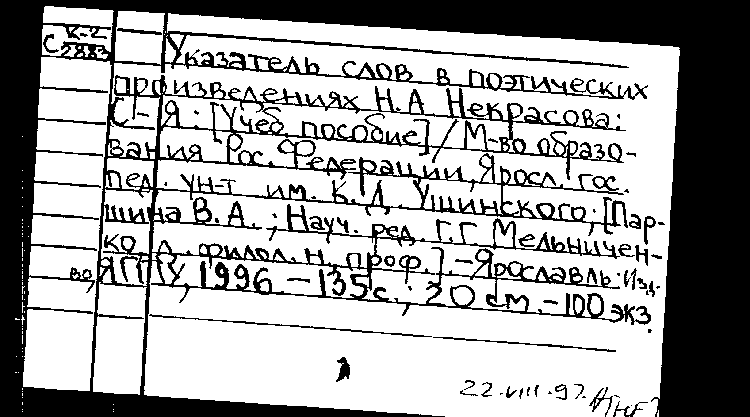 С К-2
2883
Указатель слов в поэтических
произведениях Н.А Некрасова:
С-Я: [Учеб. пособие] / М-во образо-
вания Рос. Федерации, Яросл. гос.
пед. ун-т им. К.Д. Ушинского; [Пар-
шина В.А.; Науч. ред. Г.Г Мельничен-
ко, д. филол. н. проф.].-Ярославль: Изд-
во, ЯГПУ, 1996.-135с.; 20 см.-100 экз.
22.VIII.97.